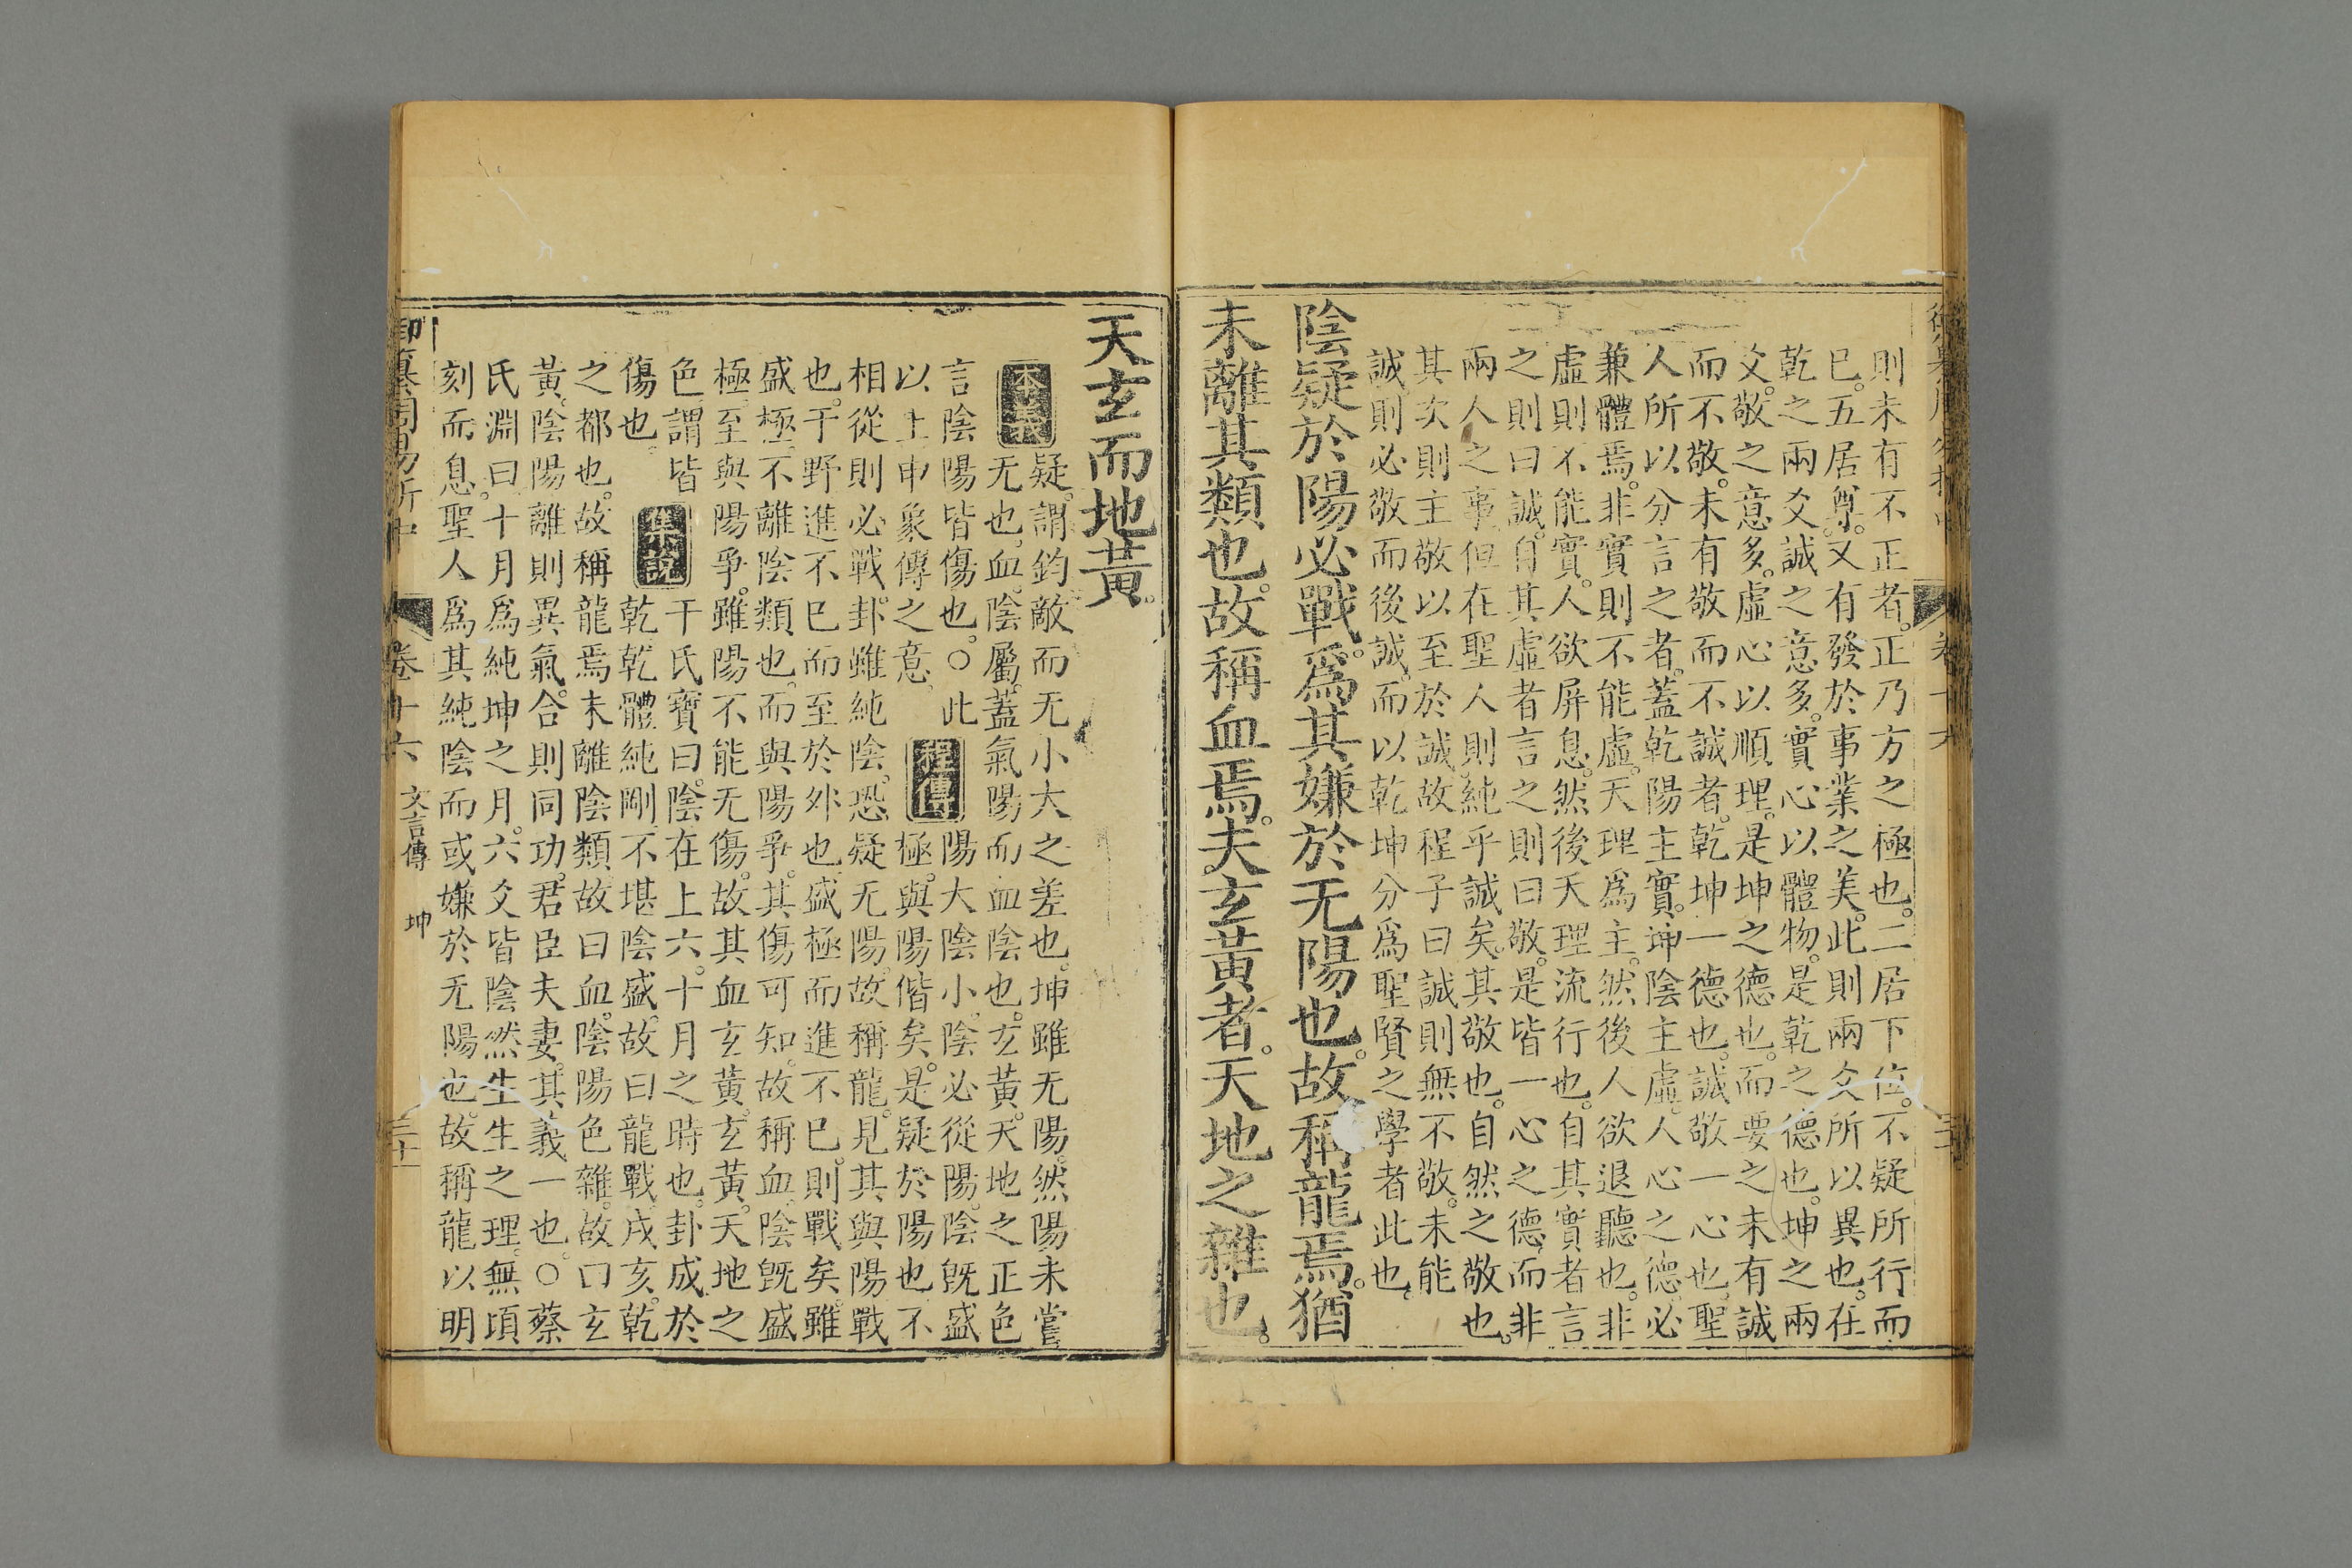 則未有不正者。正乃方之極也。二居下位。不疑所行而
已。五居尊。又有發於事業之美。此則兩爻所以異也。在
乾之兩爻誠之意多。實心以體物。是乾之德也。坤之兩
爻。敬之意多。虛心以順理。是坤之德也。而要之未有誠
而不敬。未有敬而不誠者。乾坤一德也。誠敬一心也。聖
人所以分言之者。蓋乾陽主實。坤陰主虛。人心之德。必
兼體焉。非實則不能虛。天理爲主。然後人欲退聽也。非
虛則不能實。人欲屏息。然後天理流行也。自其實者言
之則曰誠。自其虛者言之則曰敬。是皆一心之德。而非
兩人之事。但在聖人則純乎誠矣。其敬也。自然之敬也。
其次則主敬以至於誠。故程子曰誠則無不敬。未能
誠。則必敬而後誠。而以乾坤分爲聖賢之學者此也。
陰疑於陽必戰。爲其嫌於无陽也。故稱龍焉。猶
未離其類也。故稱血焉。夫玄黃者。天地之雜也。
天玄而地黃。
本義
疑。謂鈞敵而无小大之差也。坤雖无陽。然陽未嘗
无也。血。陰屬。蓋氣陽而血陰也。玄黃。天地之正色
言陰陽皆傷也。○此
以上申象傳之意。
程傳
陽大陰小。陰必從陽。陰旣盛
極。與陽偕矣。是疑於陽也。不
相從則必戰。卦雖純陰。恐疑无陽。故稱龍。見其與陽戰
也。于野進不已而至於外也。盛極而進不已。則戰矣。雖
盛極。不離陰類也。而與陽爭。其傷可知。故稱血。陰旣盛
極。至與陽爭。雖陽不能无傷。故其血玄黃。玄黃。天地之
色。謂皆
傷也。
集說
干氏寶曰。陰在上六。十月之時也。卦成於
乾。乾體純剛。不堪陰盛。故曰龍戰。戌亥。乾
之都也。故稱龍焉。未離陰類。故曰血。陰陽色雜。故曰玄
黃。陰陽離則異氣。合則同功。君臣夫妻。其義一也。○蔡
氏淵曰。十月爲純坤之月。六爻皆陰。然生生之理。無頃
刻而息。聖人爲其純陰而或嫌於无陽也。故稱龍以明
御纂周易折中 卷十六 文言傳 坤